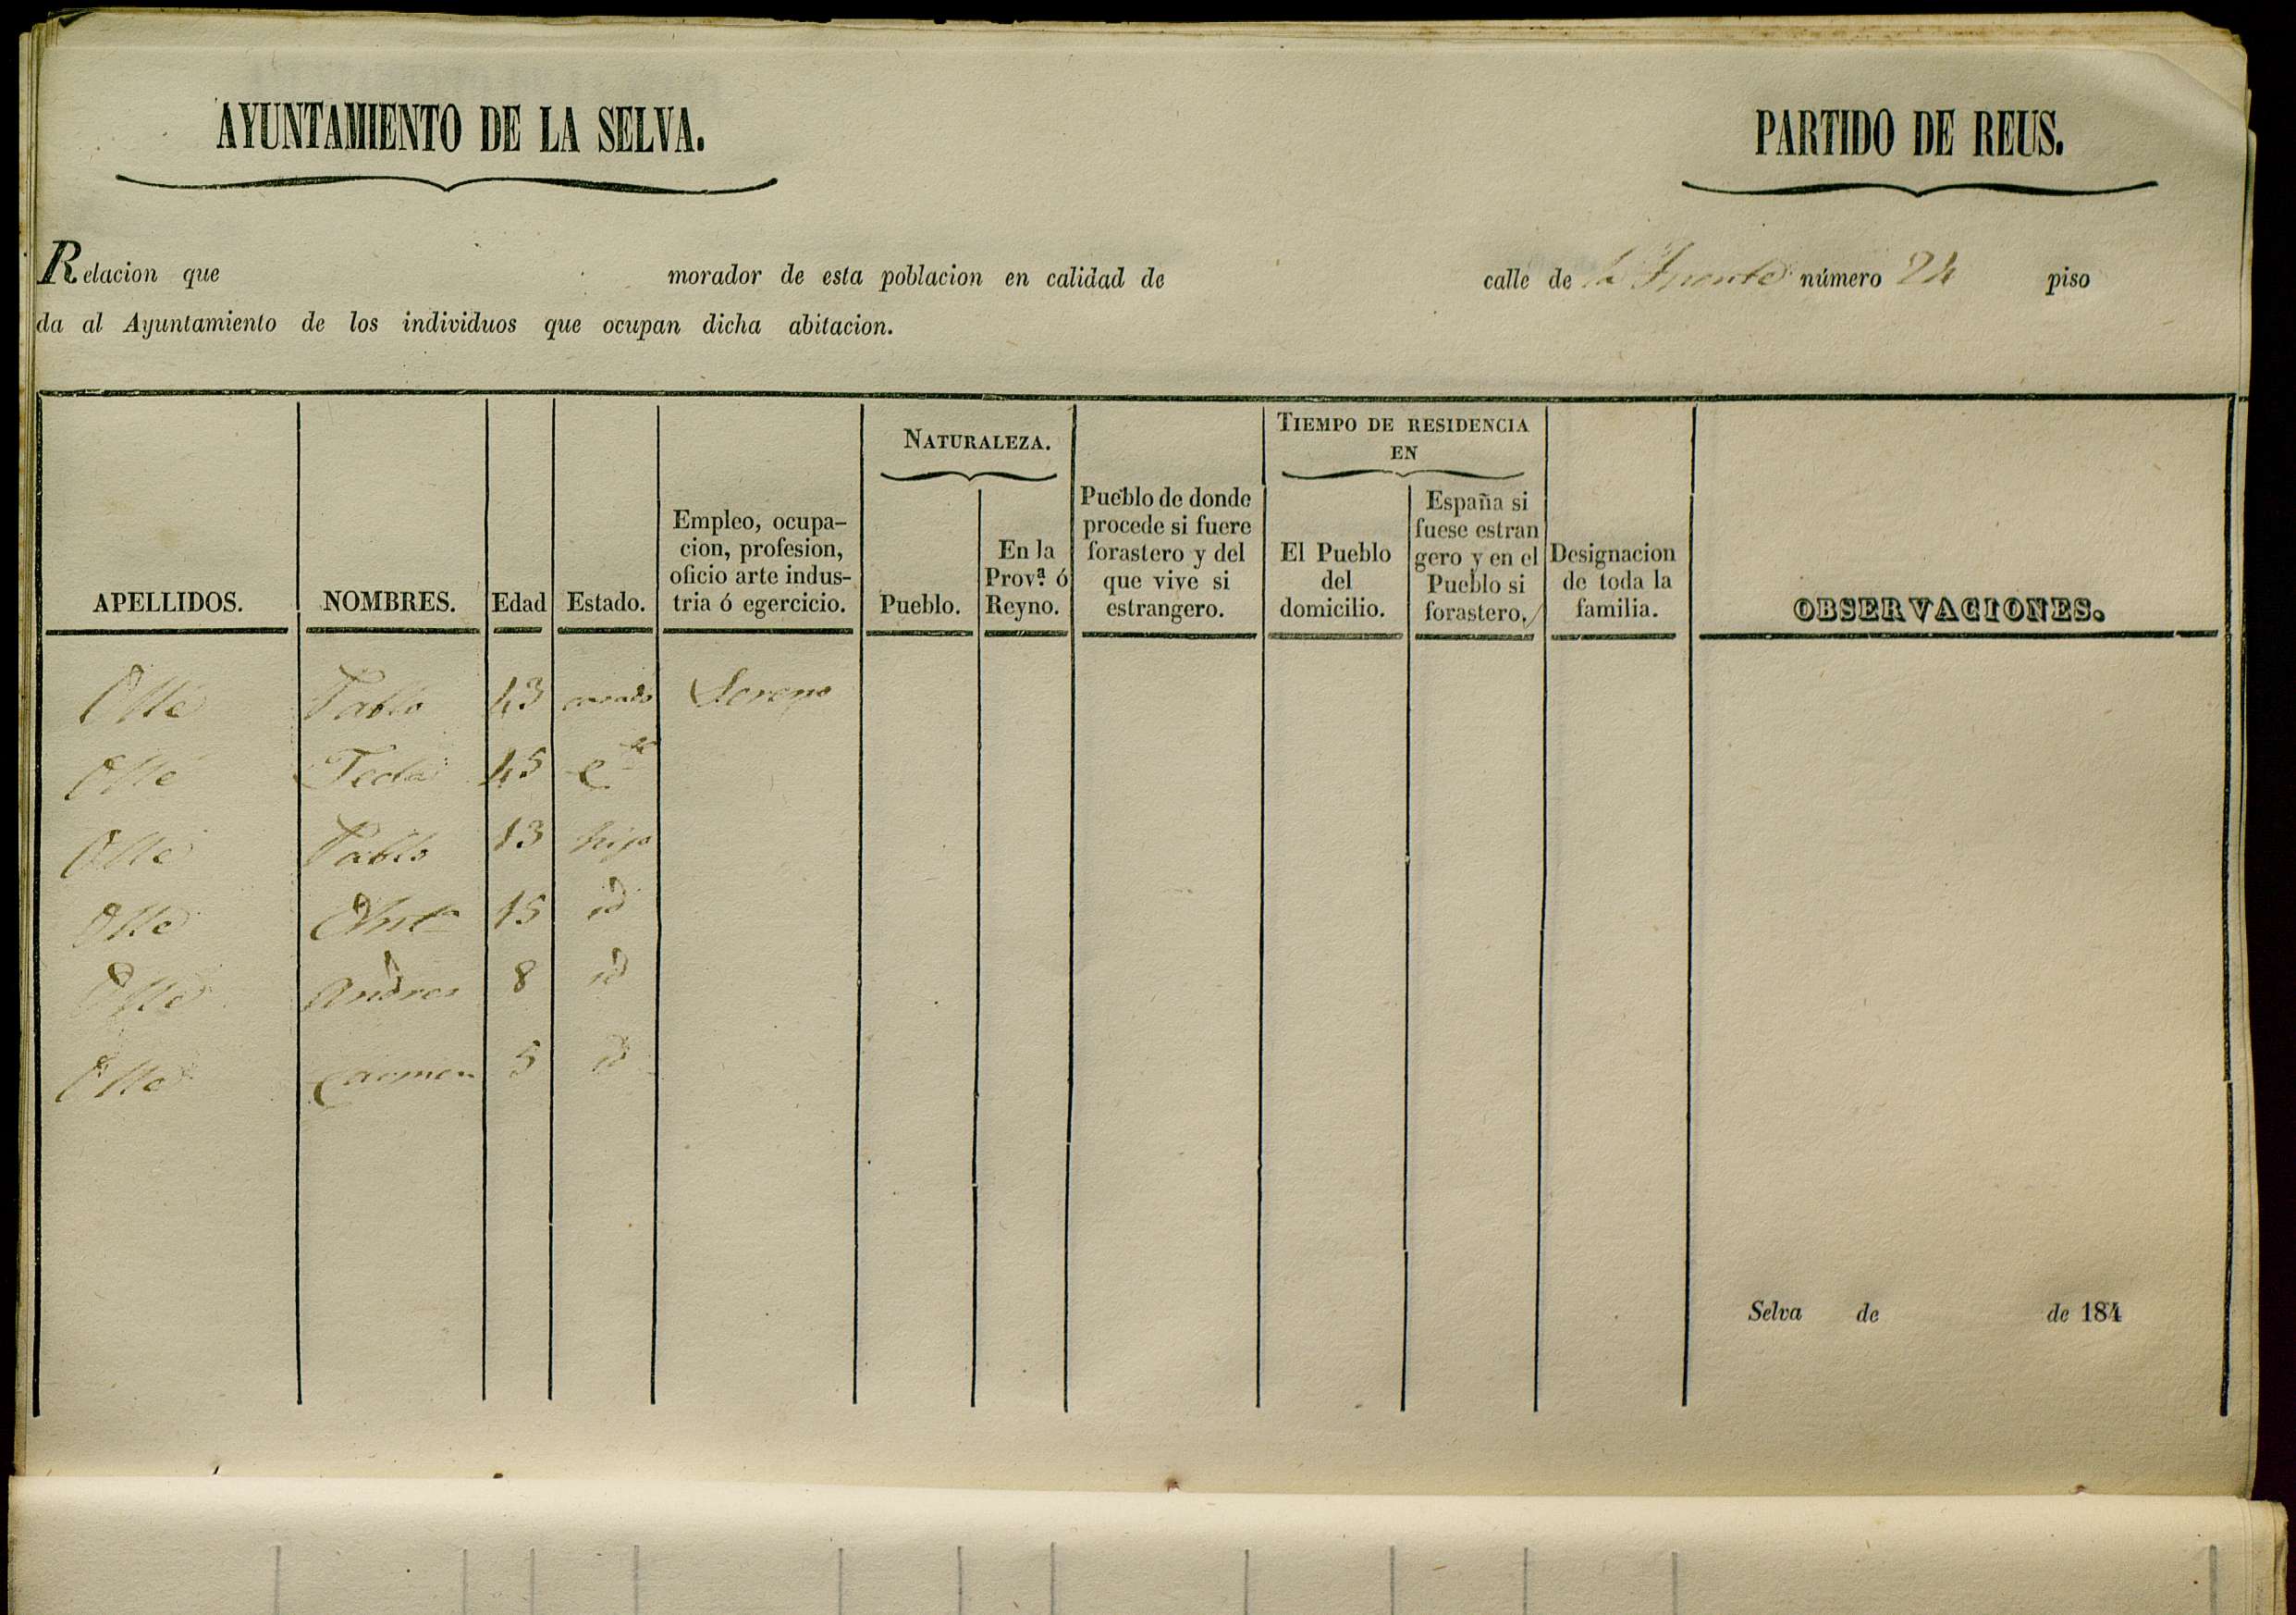 AYUNTAMIENTO DE LA SELVA.
PARTIDO DE REUS.
Relacion que morador de esta poblacion en calidad de calle de la Fuente número 24 piso
da al Ayuntamiento de los individuos que ocupan dicha abitacion.
APELLIDOS.
NOMBRES.
Edad
Estado.
Empleo, ocupa-
cion, profesion,
oficio arte indus-
tria ó egercicio.
NATURALEZA.
Pueblo.
En la
Prov.ª ó
Reyno.
Pueblo de donde
procede si fuere
forastero y del
que vive si
estrangero.
TIEMPO DE RESIDENCIA
EN
El Pueblo
del
domicilio.
España si
fuese estran
gero y en el
Pueblo si
forastero.
Designacion
de toda la
familia.
OBSERVACIONES.
Olle Pablo 43 casado Sereno
Olle Tecla 45
Olle Pablo 13 hijo
Olle 15 id
Olle Andres 8 id
Olle Carmen 5 id
Selva de de 184